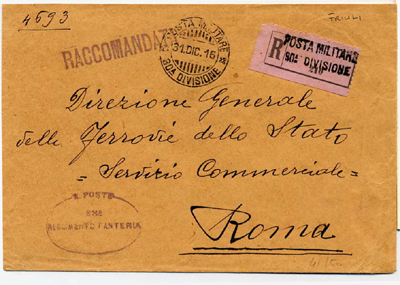 4693
FRIULI
RACCOMANDA
POSTA MILITARE
31.DIC.15
30A DIVISIONE
R
POSTA MILITARE
30A DIVISIONE
Direzione Generale
delle Ferrovie dello Stato
= Servizio Commerciale =
R. POSTE
REGGIMENTO FANTERIA
Roma